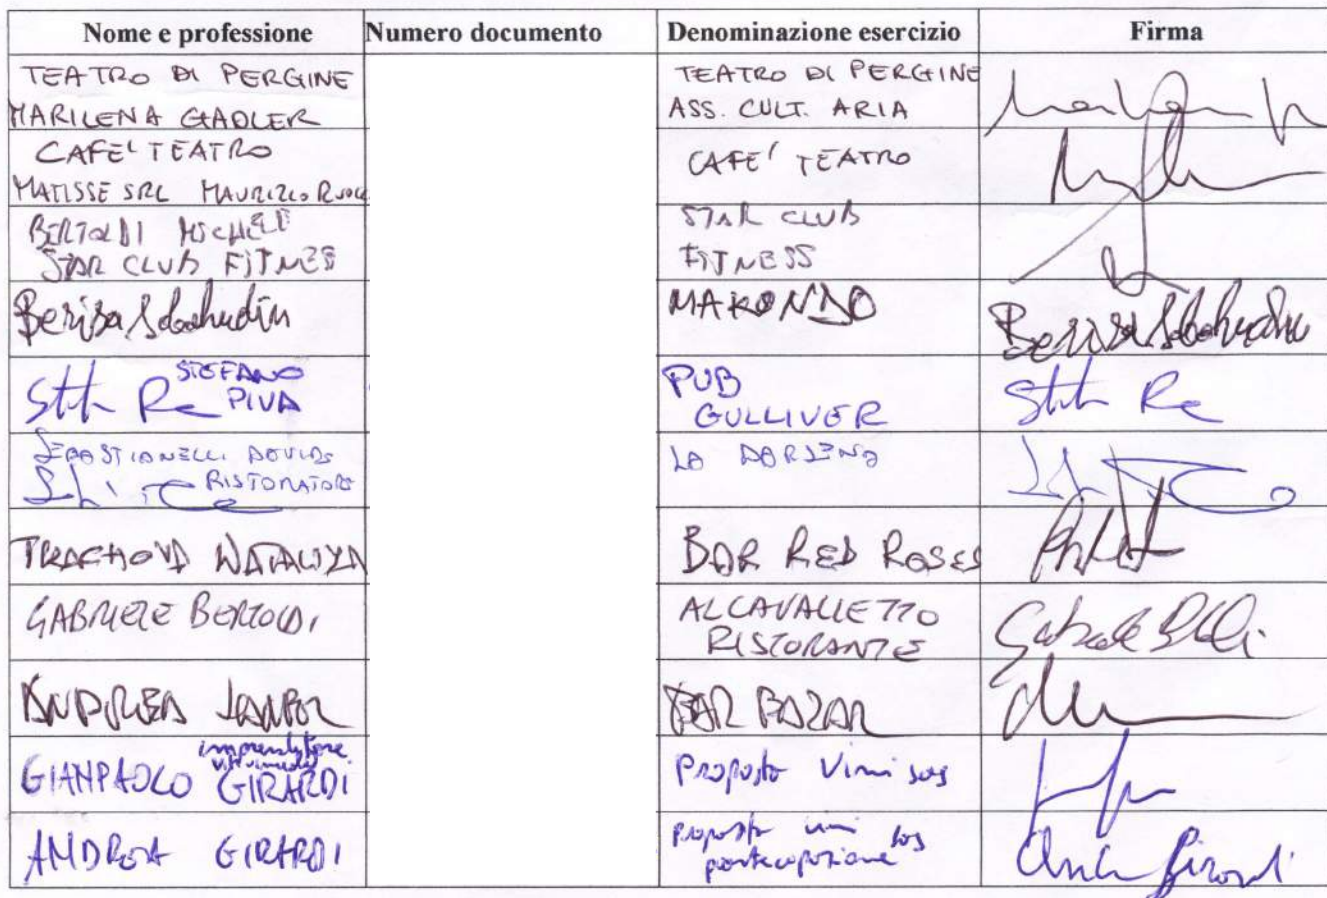 Nome e professione Numero documento Denominazione esercizio Firma
TEATRO DI PERGINE
MARILENA GADLER
TEATRO DI PERGINE
ASS. CULT. ARIA
CAFE' TEATRO
MATISSE SRL MAURIZIO
CAFE' TEATRO
BERTOLDI MICHELE
STAR CLUB FITNES
STAR CLUB
FITNESS
Berisa Sebahudin
MAKONDO
Berisa Sebahudin
STEFANO
PIVA
PUB
GULLIVER
SEBASTIANELLI DAVIDE
RISTORATORE
LA DARSENA
NATALIYA
BAR RED ROSES
GABRIELE BERTOLDI
AL CAVALLETTO
RISTORANTE
ANDREA
BAR BAZAR
imprenditore
GIANPAOLO GIRARDI
Proposta Vini sas
ANDREA GIRARDI
proposta vini sas
partecipazione